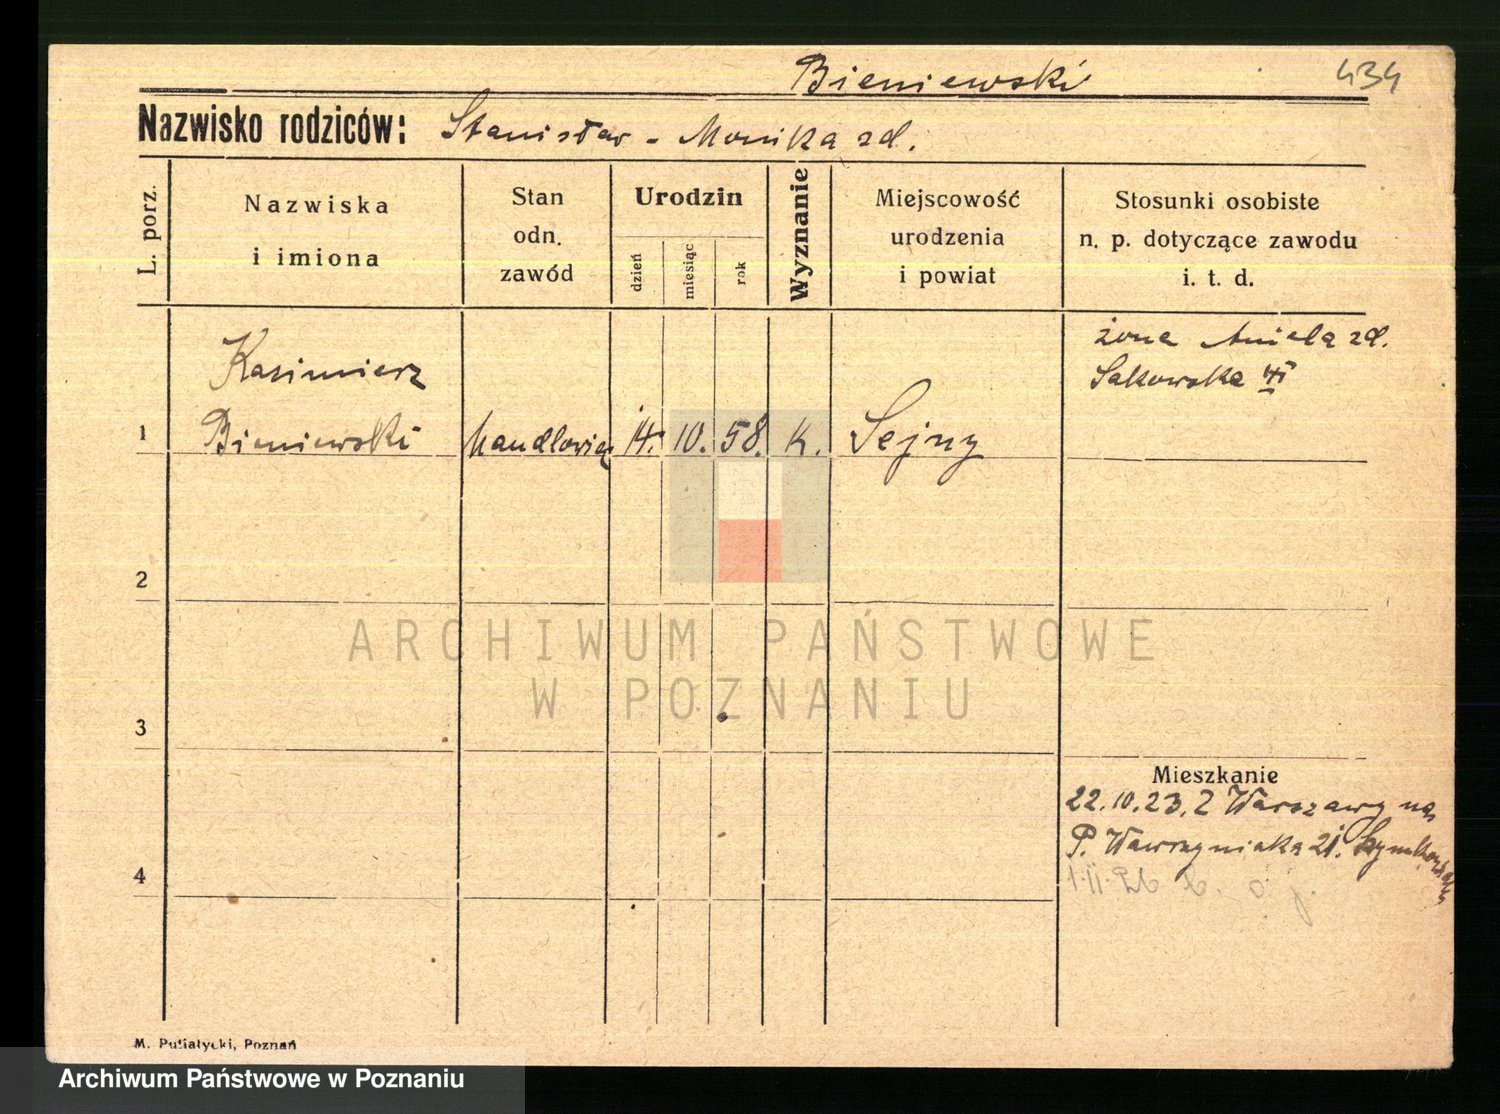 Bieniewski 434
Nazwisko rodziców: Stanisław - Monika zd.
L. porz.
Nazwiska
i imiona
Stan
odn.
zawód
Urodzin
dzień
miesiąc
rok
Wyznanie
Miejscowość
urodzenia
i powiat
Stosunki osobiste
n. p. dotyczące zawodu
i. t. d.
żona Aniela zd.
Sakowska
Kazimierz
1 Bieniewski handlowiec 14. 10. 58. k. Sejny
2
3
4
ARCHIWUM PAŃSTWOWE
W POZNANIU
Mieszkanie
22.10.23. Z Warszawy na
P. Wawrzyniaka 21.
M. Putiatycki, Poznań
Archiwum Państwowe w Poznaniu